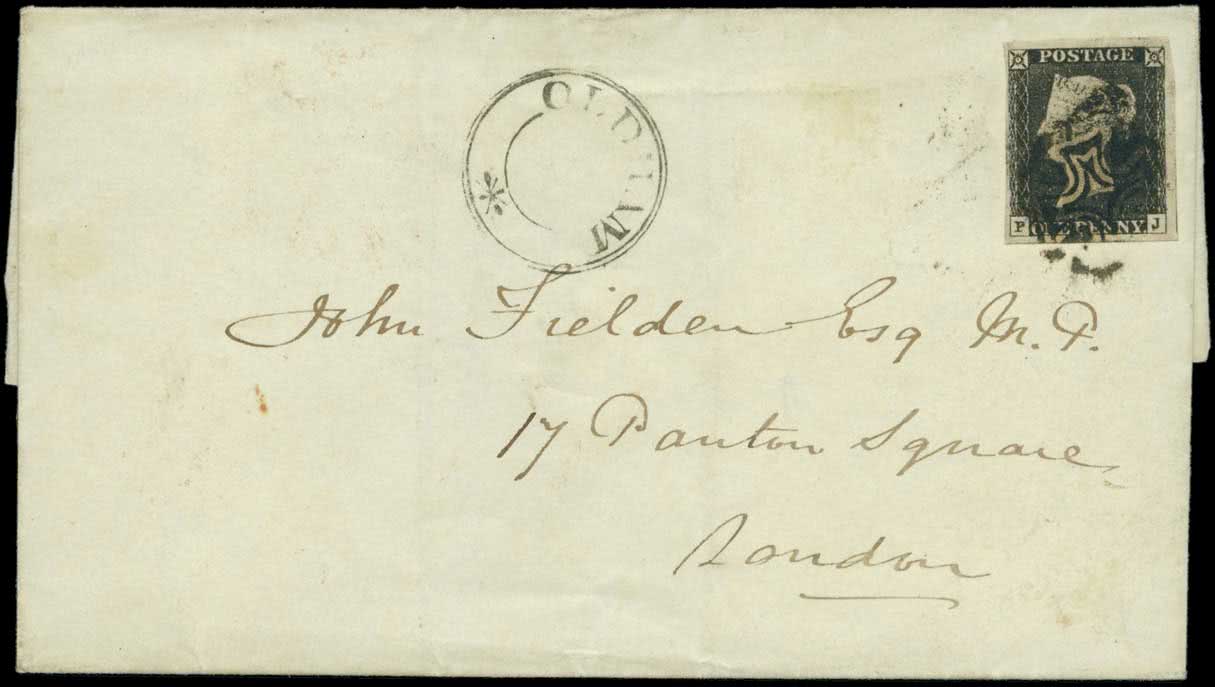 POSTAGE
P ONE PENNY J
OLDHAM
John Fielden Esq M.P.
17 Panton Square
London